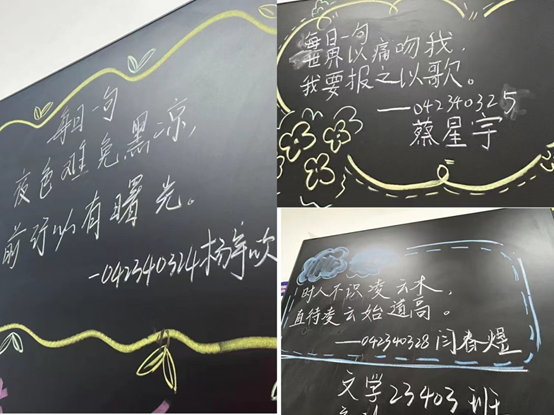 每日一句
夜色难免黑凉，
前行必有曙光。
—042340324杨宇欣
每日一句
世界以痛吻我，
我要报之以歌。
—042340325
蔡星宇
时人不识凌云木，
直待凌云始道高。
—042340328闫春煜
文学23403班